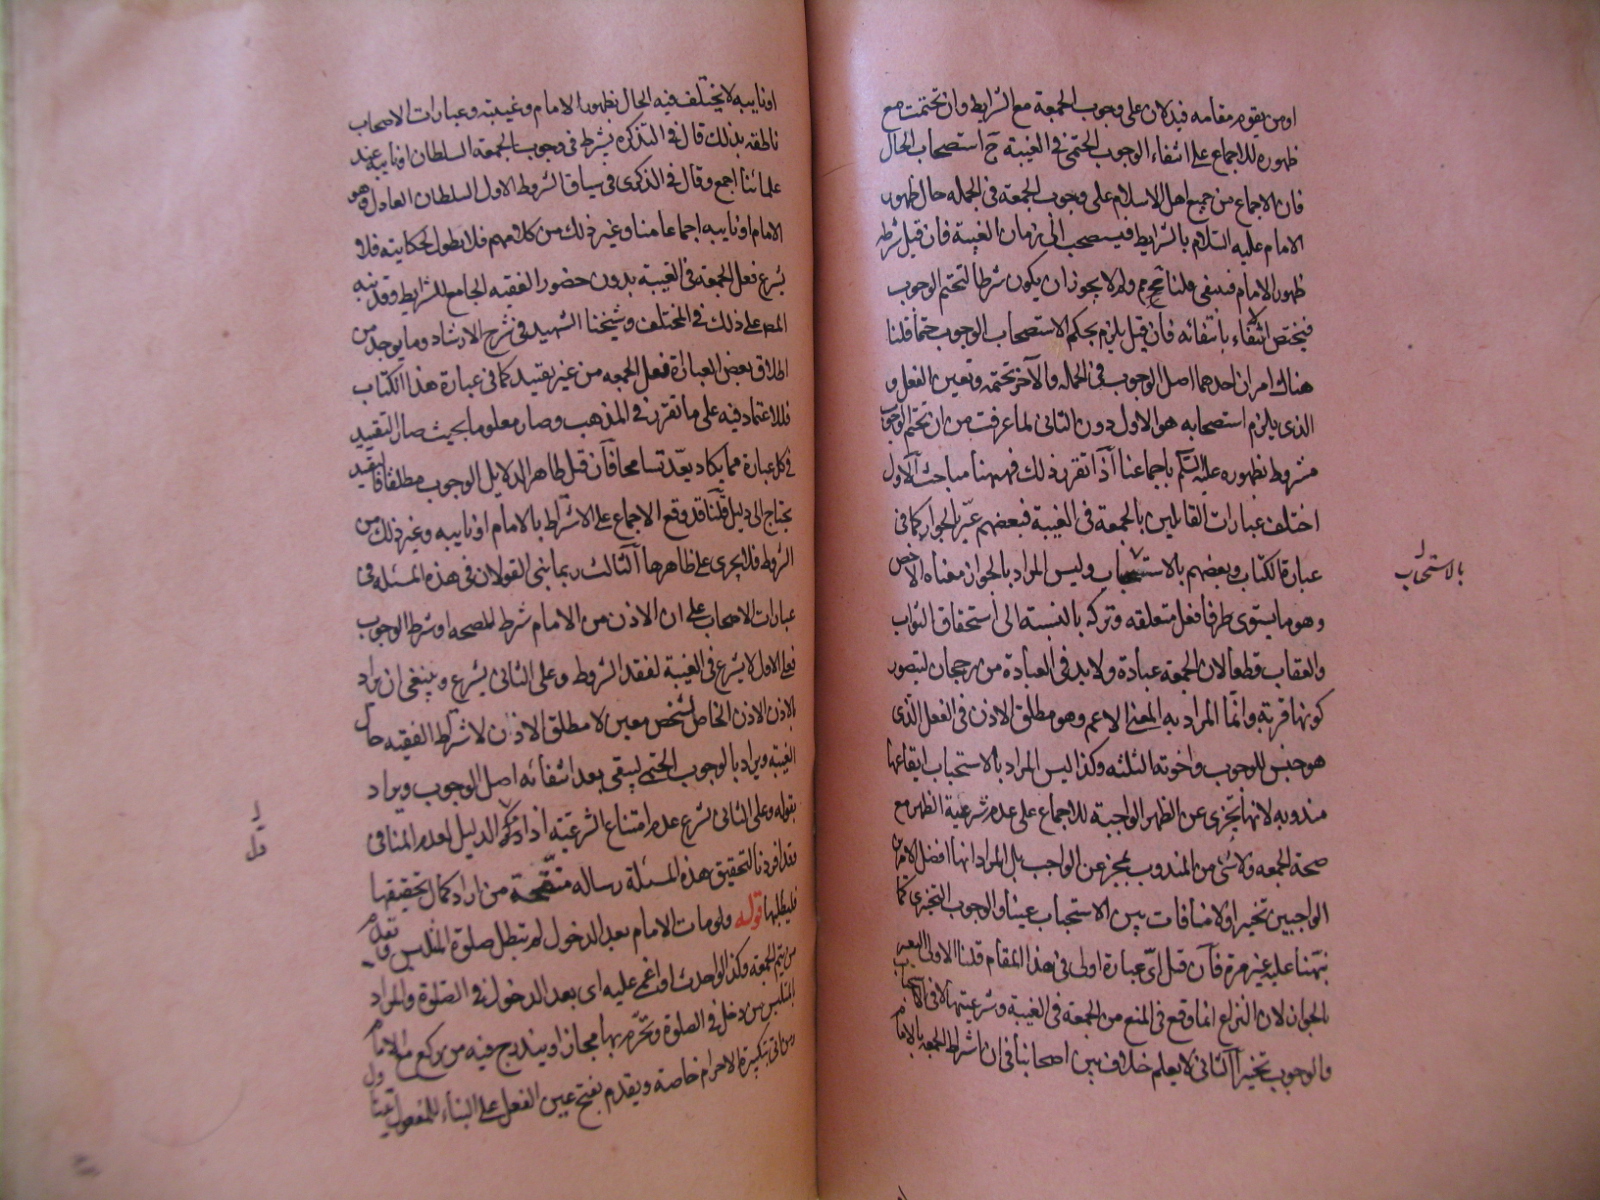 او من يقوم مقامه فيدلان على وجوب الجمعة مع الشرايط وان تحتمت مع
ظهوره للاجماع على انتفاء الوجوب الحتمى فى الغيبة ح استصحاب الحال
فان الاجماع من جميع اهل الاسلام على وجوب الجمعة فى الجملة حال ظهور
الامام عليه السلام بالشرايط فيستصحب الى زمان الغيبة فان قيل شرطه
ظهور الامام فينتفى قلنا مم ولم لا يجوز ان يكون شرطا لتحتم الوجوب
فيختص الانتفاء بانتفائه فان قيل يلزم بحكم الاستصحاب الوجوب حتما قلنا
هناك امران احدهما اصل الوجوب فى الجملة والآخر تحتمه وتعين الفعل و
الذى يلزم استصحابه هو الاول دون الثانى لما عرفت من ان تحتم الوجوب
مشروط بظهوره عليه السلم باجماعنا اذا تقرر ذلك فههنا مباحث الاول
اختلف عبارات القايلين بالجمعة فى الغيبة فبعضهم عبر بالجواز كما فى
عبارة الكتاب وبعضهم بالاستحباب وليس المراد بالجواز معناه الاخص
بالاستحباب
وهو ما يستوى طرفا فعل متعلقه وتركه بالنسبة الى استحقاق الثواب
والعقاب قطعا لان الجمعة عبادة ولا بد فى العبادة من رجحان ليتصور
كونها قربة وانما المراد به المعنى الاعم وهو مطلق الاذن فى الفعل الذى
هو جنس للوجوب واخوته الثلثه وكذا ليس المراد بالاستحباب ايقاعها
مندوبه لانها تجزى عن الظهر الواجبة للاجماع على عدم شرعية الظهر مع
صحة الجمعه ولا شئ من المندوب بمجز عن الواجب بل المراد انها افضل الامرين
الواجبين تخييرا ولا منافات بين الاستحباب عينا والوجوب التخيرى كما
نبهنا عليه غير مرة فان قيل اى عبارة اولى فى هذا المقام قلنا الاولى التعبير
بالجواز لان النزاع انما وقع فى المنع من الجمعة فى الغيبة وشرعيتها لا فى الاستحباب
والوجوب تخييرا الثانى لا يعلم خلاف بين اصحابنا فى ان اشتراط الجمعه بالامام
او نايبه لا يختلف فيه الحال بظهور الامام وغيبته وعبارات الاصحاب
ناطقه بذلك قال فى التذكرة يشترط فى وجوب الجمعة السلطان او نايبه عند
علمائنا اجمع وقال فى الذكرى فى سياق الشروط الاول السلطان العادل وهو
الامام او نايبه اجماعا منا وغير ذلك من كلامهم فلا نطول بحكايته فلا
يشرع فعل الجمعة فى الغيبة بدون حضور الفقيه الجامع للشرايط وقد نبه
المص على ذلك فى المختلف وشيخنا الشهيد فى شرح الارشاد وما يوجد من
اطلاق بعض العبارة فعل الجمعه من غير تقييد كما فى عبارة هذا الكتاب
فللاعتماد فيه على ما تقرر فى المذهب وصار معلوما بحيث صار التقييد
فى كل عبارة مما يكاد يعد تسامحا فان قيل ظاهر الدلايل الوجوب مطلقا فالتقييد
يحتاج الى دليل قلنا قد وقع الاجماع على الاشتراط بالامام او نايبه وغير ذلك من
الشروط فلا يجرى على ظاهرها الثالث ربما بنى القولان فى هذه المسئله فى
عبارات الاصحاب على ان الاذن من الامام شرط للصحه او شرط الوجوب
فعلى الاول لا يشرع فى الغيبة لفقد الشروط وعلى الثانى يشرع وينبغى ان يراد
بالاذن الاذن الخاص لشخص معين لا مطلق الاذن لاشتراط الفقيه حال
الغيبة ويراد بالوجوب الحتمى ليبقى بعد انتفائه اصل الوجوب ويراد
بقوله وعلى الثانى يشرع عدم امتناع الشرعيه اذا دل الدليل لعدم المنافى
قد افردنا لتحقيق هذه المسئلة رساله منقحة من اراد كمال تحقيقها
فليطلبها قوله ولو مات الامام بعد الدخول لم تبطل صلوة المتلبس ويقدم
من يتم الجمعة وكذا لو احدث او اغمى عليه اى بعد الدخول فى الصلوة والمراد
بالمتلبس من دخل فى الصلوة وتحرم بها مجازا ويندرج فيه من يركع مع الامام
ومن اتى بتكبيرة الاحرام خاصه ويقدم بفتح عين الفعل على البناء للمفعول